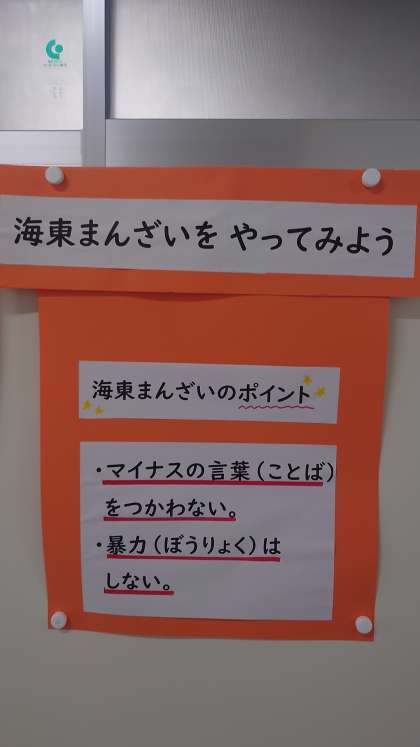 海東まんざいを やってみよう
海東まんざいのポイント
・マイナスの言葉（ことば）
をつかわない。
・暴力（ぼうりょく）は
しない。